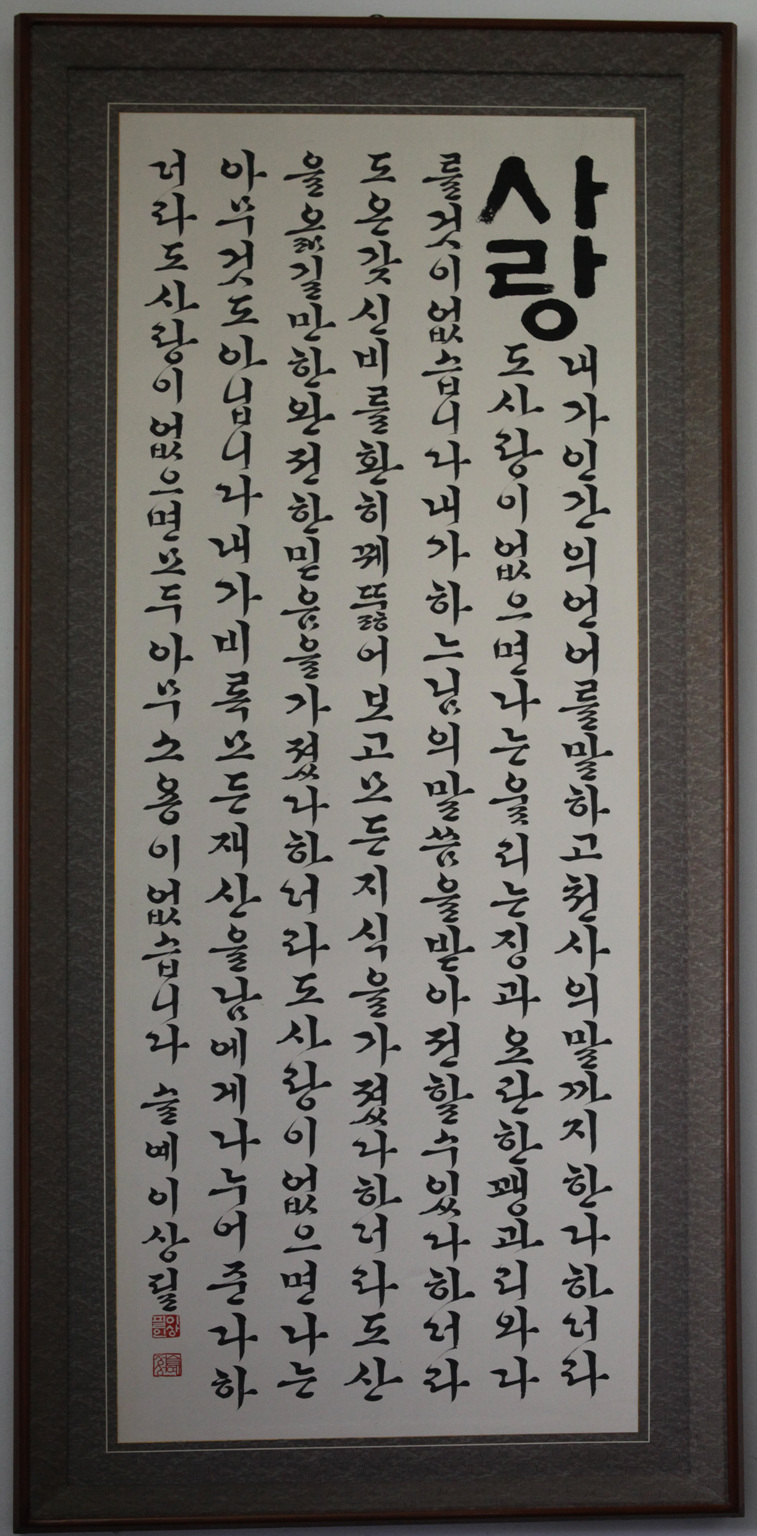 사랑
내가인간의언어를말하고천사의말까지한다하더라
도사랑이없으면나는울리는징과요란한꽹과리와다
를것이없습니다내가하느님의말씀을받아전할수있다하더라
도온갖신비를환히꿰뚫어보고모든지식을가졌다하더라도산
을옮길만한완전한믿음을가졌다하더라도사랑이없으면나는
아무것도아닙니다내가비록모든재산을남에게나누어준다하
더라도사랑이없으면모두아무소용이없습니다 이상필